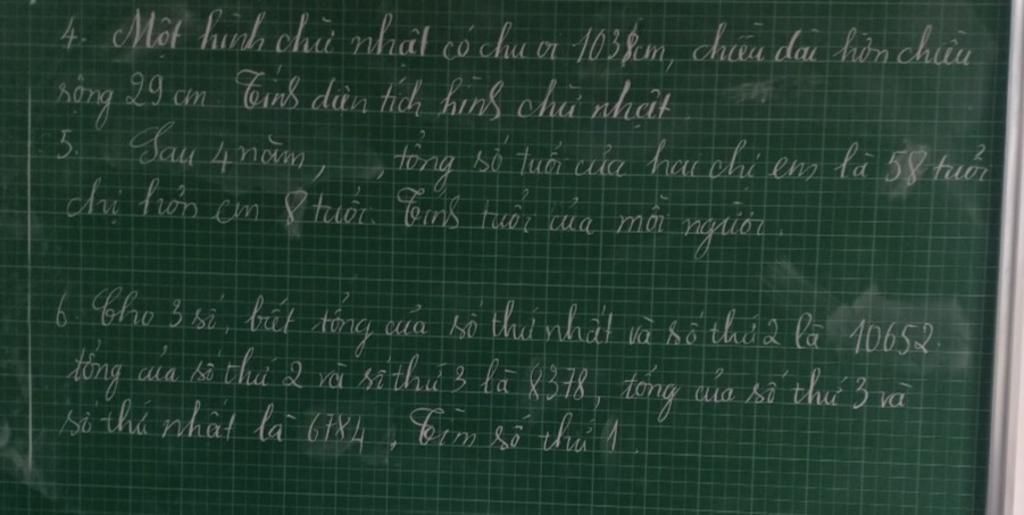 4. Một hình chữ nhật có chu vi 1038cm, chiều dài hơn chiều
rộng 29 cm. Tính diện tích hình chữ nhật.
5. Sau 4 năm, , tổng số tuổi của hai chị em là 58 tuổi
chị hơn em 8 tuổi. Tính tuổi của mỗi người.
6. Cho 3 số, biết tổng của số thứ nhất và số thứ 2 là 10652.
tổng của số thứ 2 và số thứ 3 là 8378, tổng của số thứ 3 và
số thứ nhất là 6784, Tìm số thứ 1.